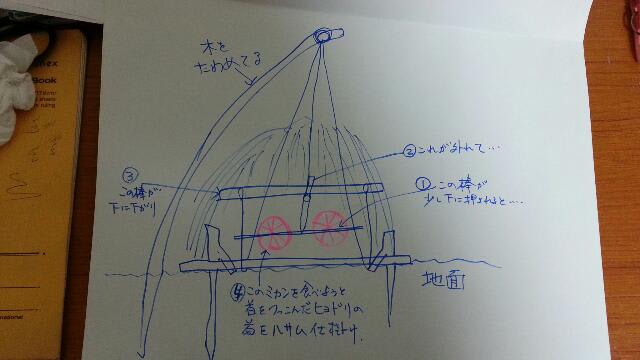 木を
たわめてる
② これが外れて…
① この棒が
少し下に押されると…
③
この棒が
下に下がり
地面
④ このミカンを食べようと
首をつっこんだヒヨドリの
首をハサム仕掛け.
Book